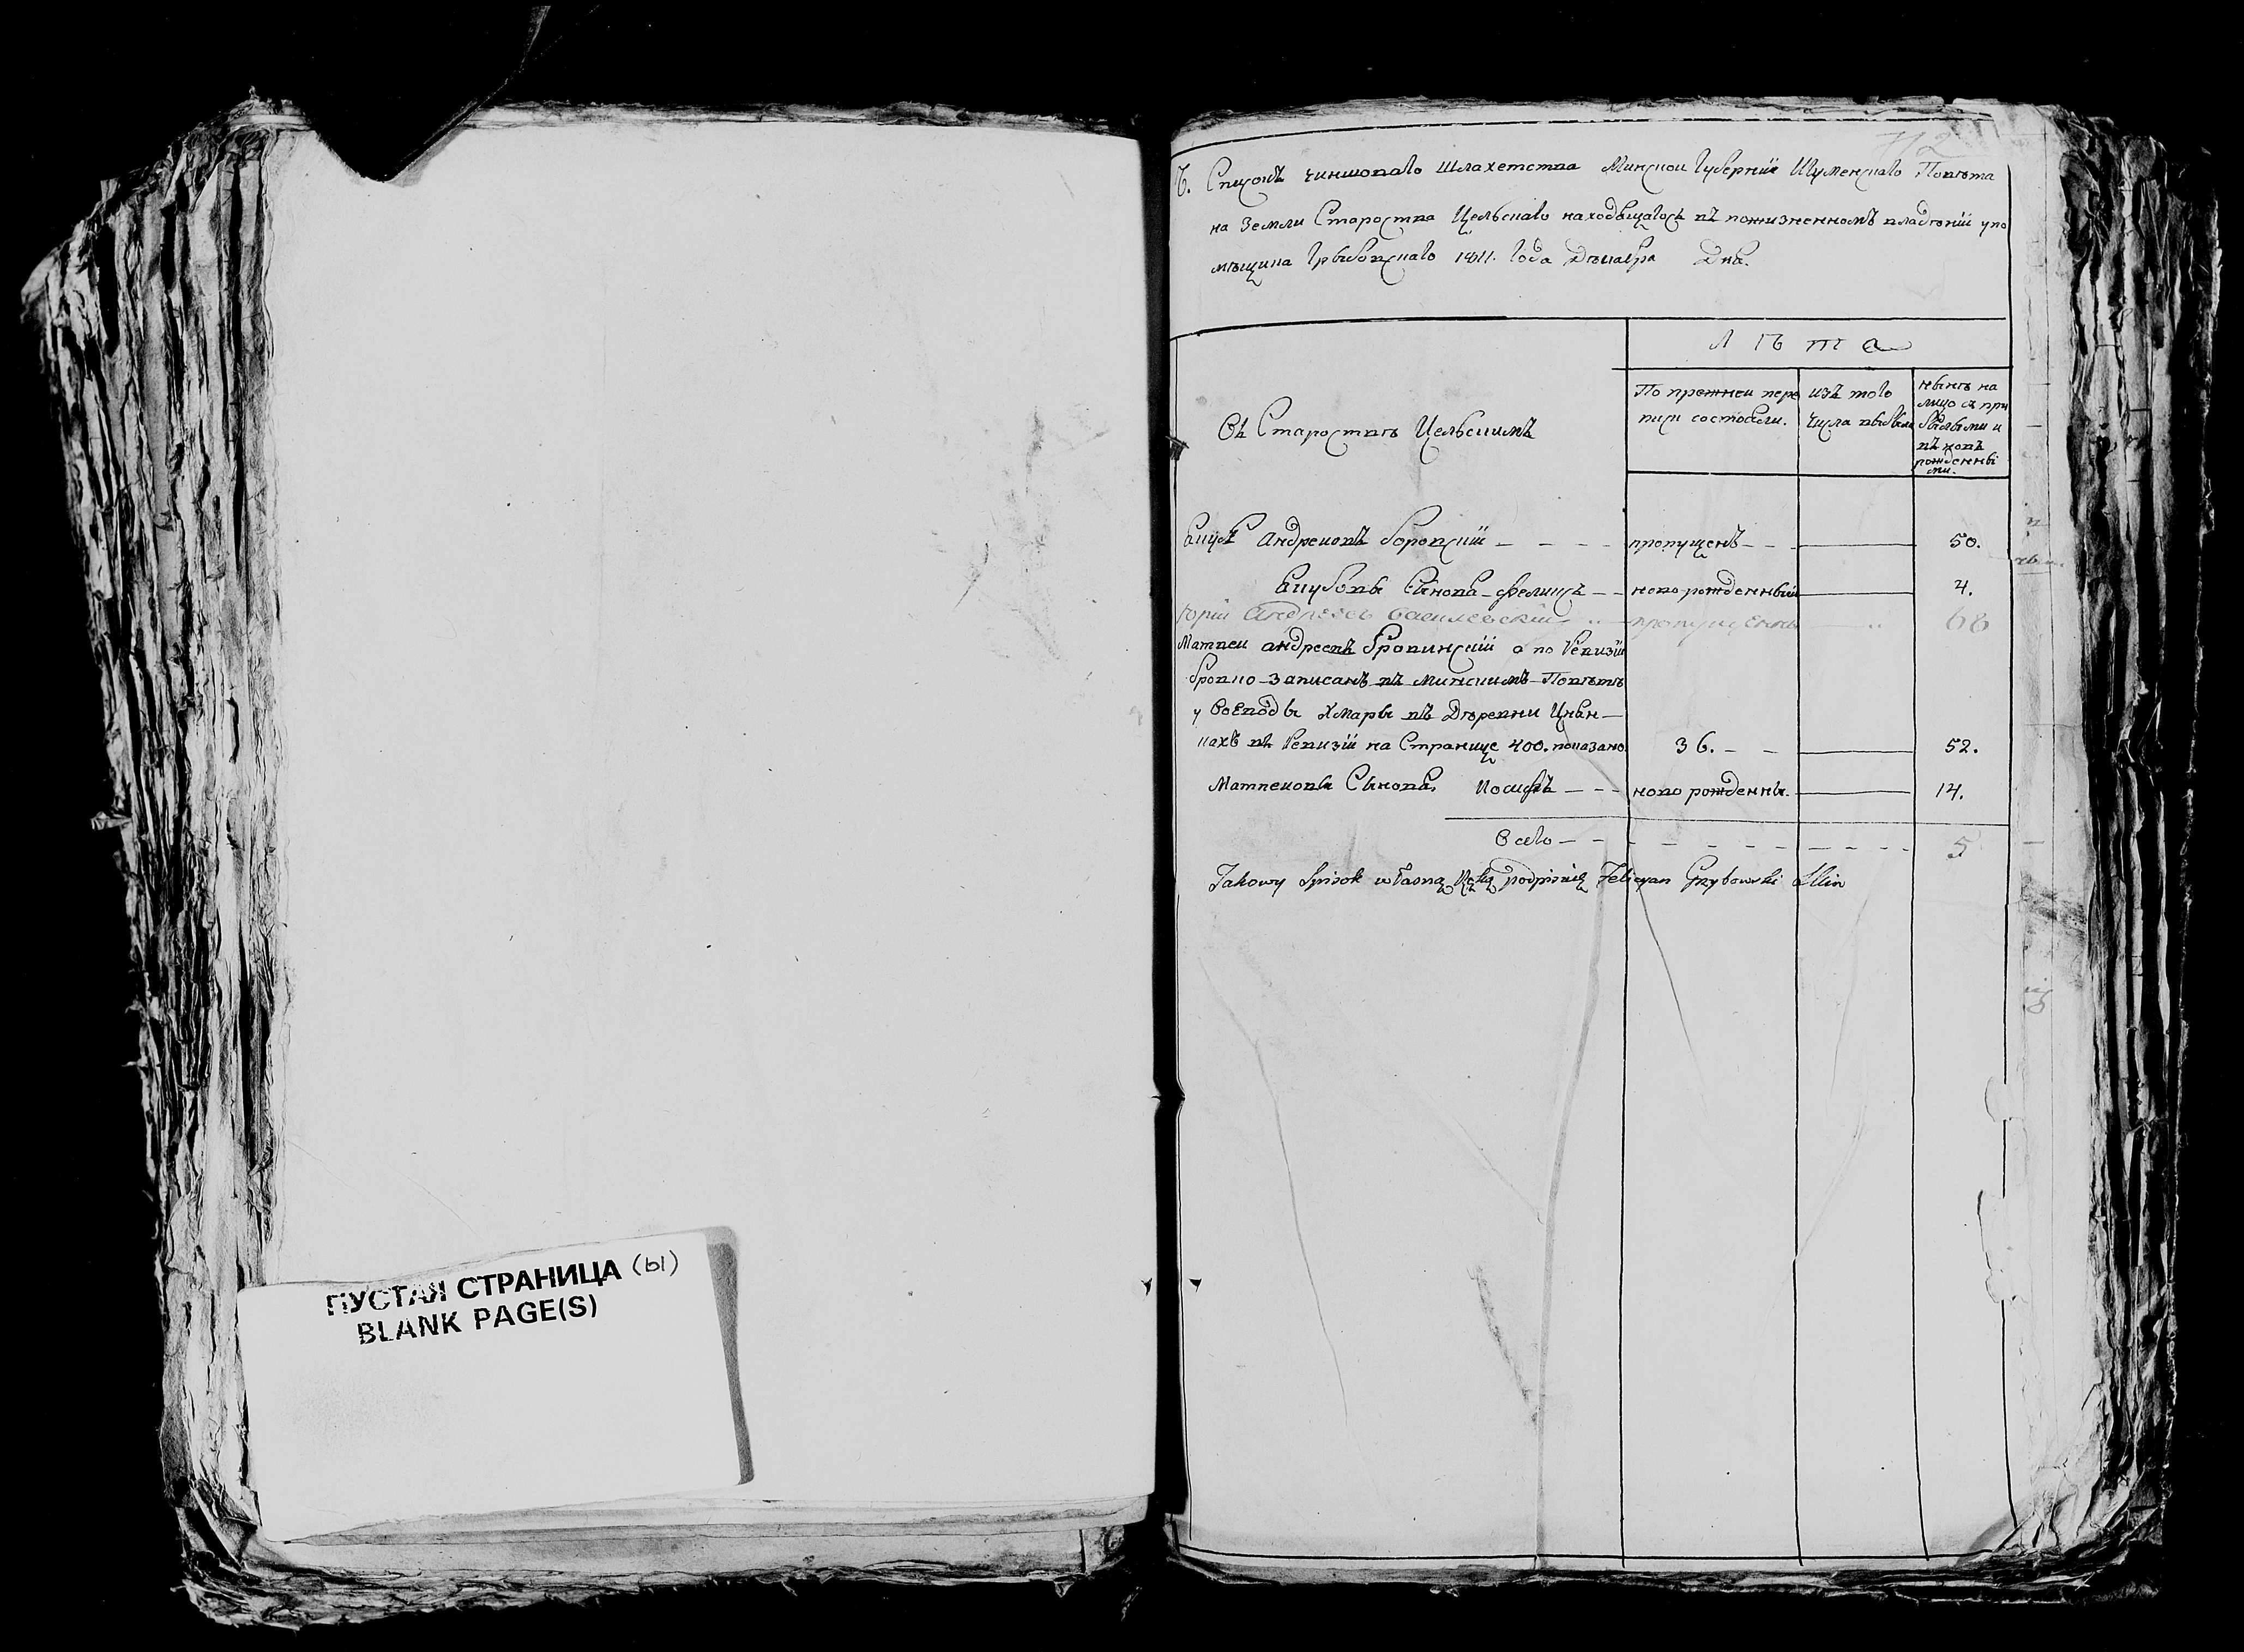 ПУСТАЯ СТРАНИЦА (ы)
BLANK PAGE(S)
712
Списокъ чиншоваго Шляхетства Минской Губерніи Игуменскаго Повѣта
на Земли Староства Цельскаго находящагося въ пожизненномъ владѣніи у по
мѣщика Грыбовскаго 1811. Года Декабря Дня.
Лѣта
Въ Староствѣ Цельскимъ
По прежней пере
писи состояли.
изъ того
числа выбыли
нынѣ на
лицо съ при
былыми и
въ новъ
рожденны
ми.
Якубъ Андреювъ Боровскій - - - - пропущенъ - - 50.
Якубовы Сынова Феликсъ - - новорожденный 4.
Юрій Андреевъ Василевскій пропущенны 68
Матвей Андреевъ Бровинскій а по Ревизіи
Бровко Записанъ въ Минскимъ Повѣтѣ
у Воеводы Хмары въ Деревни
въ Ревизіи на Странице 400. показано 36. - - 52.
Матвеювы Сынова, Иосифъ - - - новорожденны. 14.
Всего - - - 5
Takowy Spisok własną Ręką podpisuię Felicyan Grzybowski